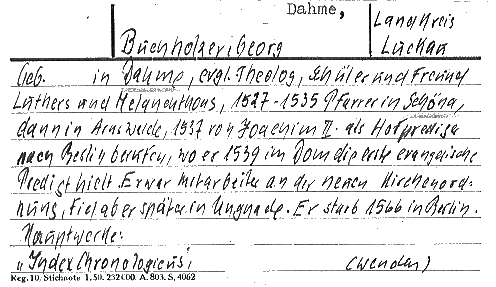 Dahme, Landkreis
Buchholzer, Georg Luckau
Geb. in Dahme, evgl. Theolog, Schüler und Freund
Luthers und Melanchthons, 1527-1535 Pfarrer in Schöna,
dann in Arnswalde, 1537 von Joachim II. als Hofprediger
nach Berlin berufen, wo er 1539 im Dom die erste evangelische
Predigt hielt. Er war Mitarbeiter an der neuen Kirchenord-
nung, fiel aber später in Ungnade. Er starb 1566 in Berlin.
Hauptwerke:
"Index Chronologicus; (wenden)
Keg. 10. Stichnote 1. 50. 232400. A. 803. S. 4062